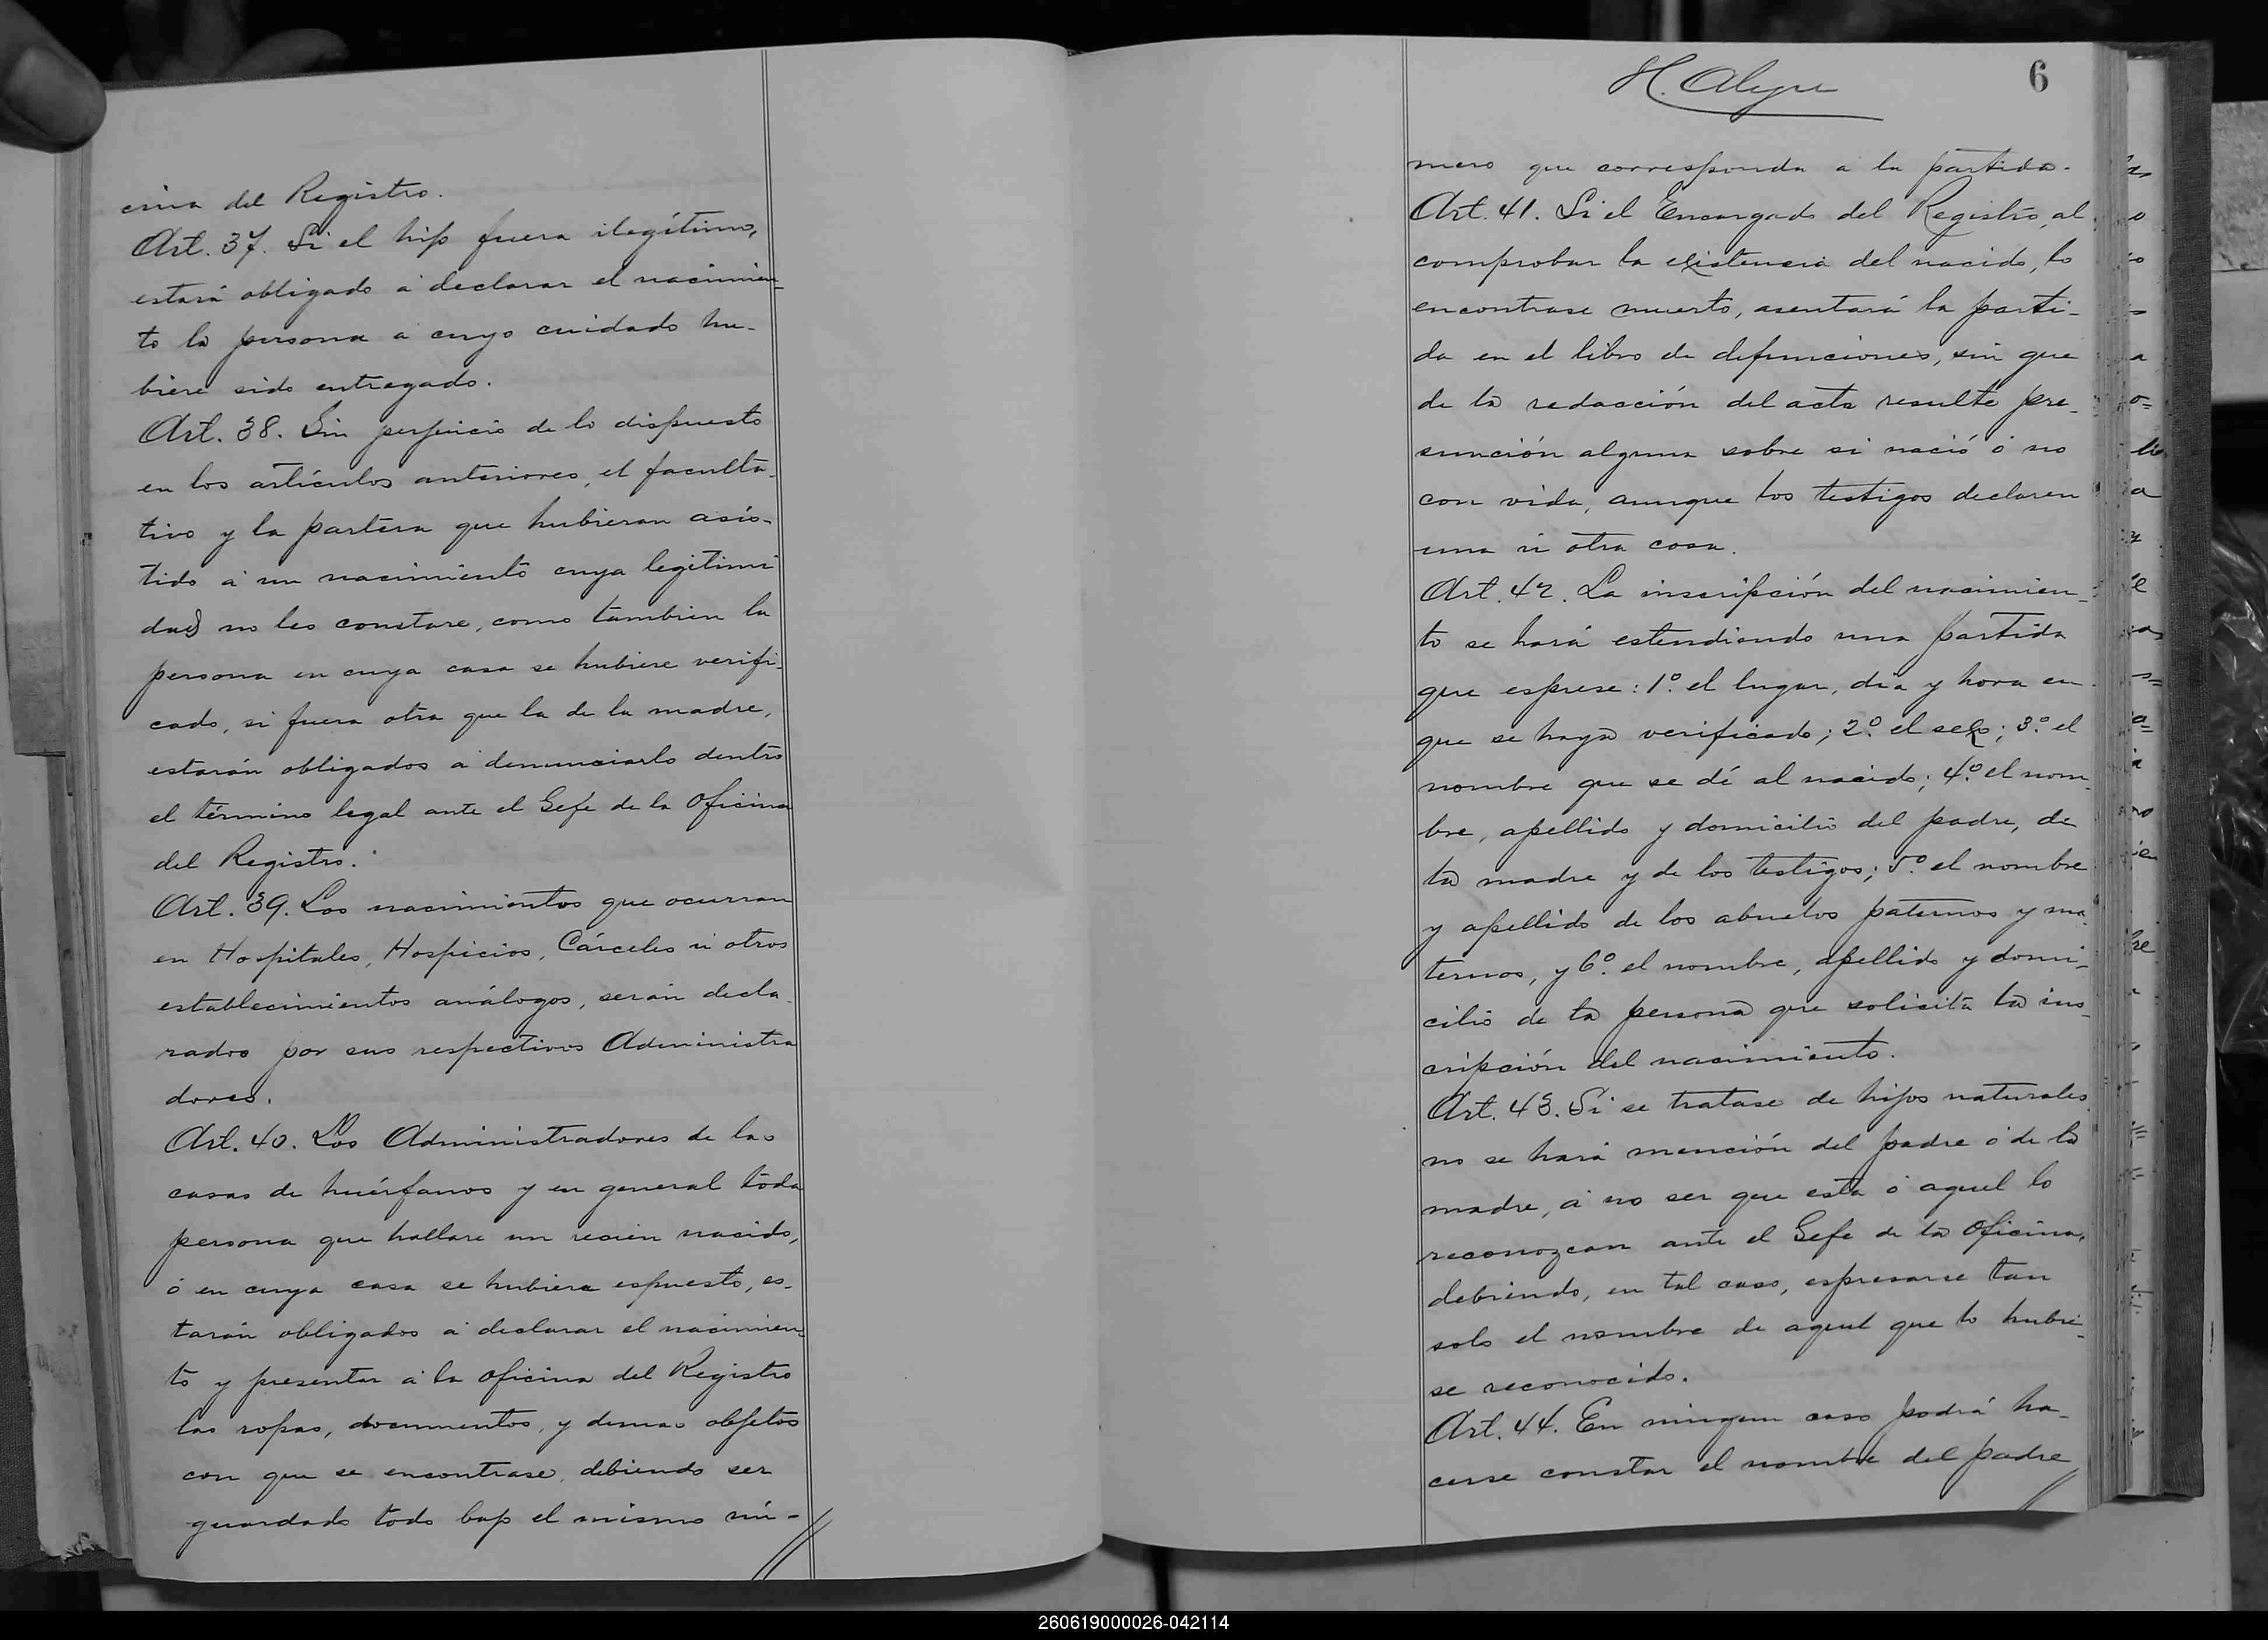 cina del Registro.
Art. 37. Si el hijo fuera ilegítimo,
estará obligado á declarar el nacimien-
to la persona a cuyo cuidado hu-
biere sido entregado.
Art. 38. Sin perjuicio de lo dispuesto
en los artículos anteriores, el faculta-
tivo y la partera que hubieran asis-
tido á un nacimiento cuya legitimi
dad no les constare, como tambien la
persona en cuya casa se hubiere verifi-
cado, si fuera otra que la de la madre,
estarán obligados á denunciarlo dentro
el término legal ante el Gefe de la Oficina
del Registro.
Art. 39. Los nacimientos que ocurran
en Hospitales, Hospicios, Cárceles ú otros
establecimientos análogos, serán decla-
rados por sus respectivos Administra
dores.
Art. 40. Los Administradores de las
casas de huérfanos y en general toda
persona que hallare un recien nacido,
ó en cuya casa se hubiera espuesto, es-
tarán obligados á declarar el nacimien-
to y presentar á la oficina del Registro
las ropas, documentos, y demas objetos
con que se encontrase, debiendo ser
guardado todo bajo el mismo nú-
H. Alegre
6
mero que corresponda á la partida.
Art. 41. Si el Encargado del Registro, al
comprobar la existencia del nacido, lo
encontrase muerto, asentará la parti-
da en el libro de defunciones, sin que
de la redacción del acta resulte pre-
sunción alguna sobre si nació ó no
con vida, aunque los testigos declaren
una ú otra cosa.
Art. 42. La inscripción del nacimien-
to se hará estendiendo una partida
que esprese: 1º. el lugar, dia y hora en
que se haya verificado; 2º. el sexo; 3º. el
nombre que se dé al nacido; 4º. el nom-
bre, apellido y domicilio del padre, de
la madre y de los testigos; 5º. el nombre
y apellido de los abuelos paternos y ma-
ternos, y 6º. el nombre, apellido y domi-
cilio de la persona que solicita la ins-
cripción del nacimiento.
Art. 43. Si se tratase de hijos naturales
no se hará mención del padre ó de la
madre, á no ser que esta ó aquel lo
reconozcan ante el Gefe de la Oficina,
debiendo, en tal caso, espresarse tan
solo el nombre de aquel que lo hubie-
se reconocido.
Art. 44. En ningun caso podrá ha-
cerse constar el nombre del padre
260619000026-042114